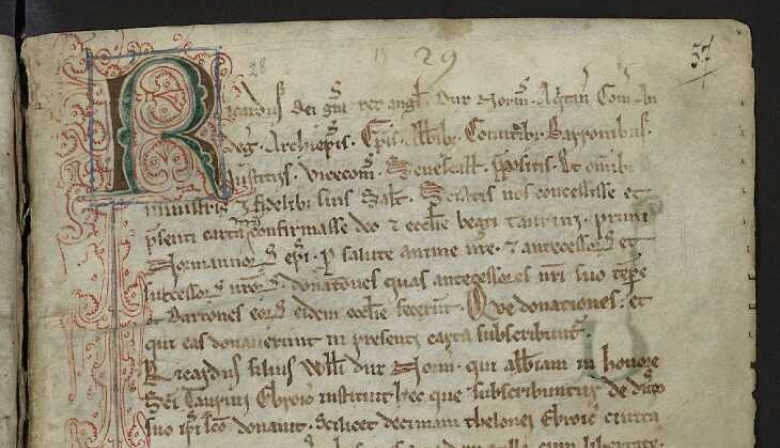 28 29 57
Ricardus dei gra rex angl. Dux Norm. Aqitan. Com. An
deg. Archiepis. Epis. Abbibz. Comitibz. Baronibus.
Justitiis. Vicecom. Senescall. Ppositis. Et omibz
ministris ⁊ fidelibz suis Salt. Sciatis nos concessisse et
psenti carta confirmasse deo ⁊ ecclie beati taurini. primi
Normannor epi. p salute anime nre. ⁊ antecessor et
successor nror. donationes quas antecessores nri suo tepe
et Barones eor eidem ecclie fecerut. Que donationes. et
qui eas donauerunt in presenti carta subscribunt.
Ricardus filius Willi dux Norm. qui abbiam in honore
Sci Taurini Ebroic instituit hec que subscribuntur de dnio
suo ipi loco donauit. Scilicet decimam thelonei Ebroic ciuita